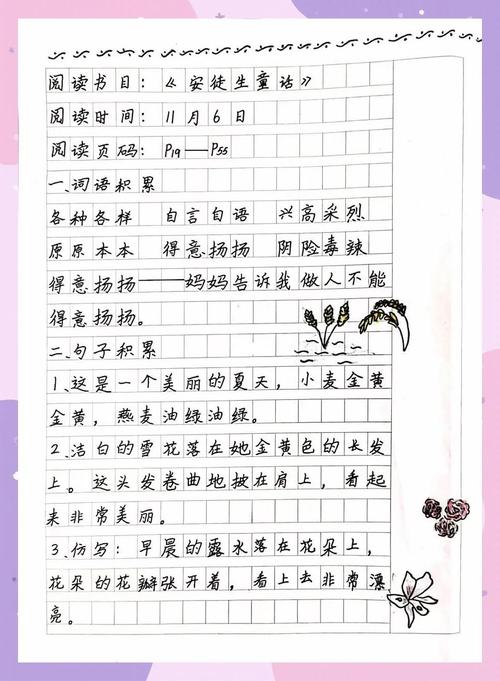 阅读书目：《安徒生童话》
阅读时间：11月6日
阅读页码：P19——P55
一、词语积累
各种各样 自言自语 兴高采烈
原原本本 得意扬扬 阴险毒辣
得意扬扬——妈妈告诉我做人不能
得意扬扬。
二、句子积累
1、这是一个美丽的夏天，小麦金黄
金黄，燕麦油绿油绿。
2、洁白的雪花落在她金黄色的长发
上。这头发卷曲地披在肩上，看起
来非常美丽。
3、仿写：早晨的露水落在花朵上，
花朵的花瓣张开着，看上去非常漂
亮。